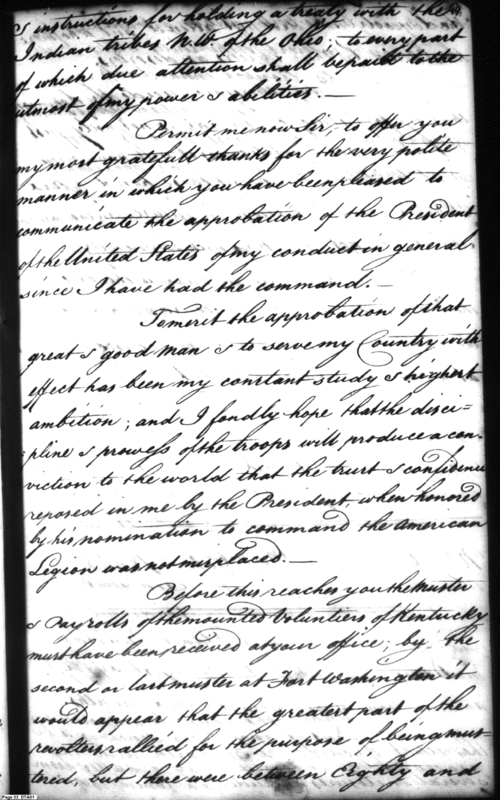 & instructions for holding a treaty with the
Indian tribes N.W. of the Ohio; to every part
of which due attention shall be paid to the
utmost of my power & abilities. —
Permit me now Sir, to offer you
my most gratefull thanks for the very polite
manner in which you have been pleased to
communicate the approbation of the President
of the United States of my conduct in general
since I have had the command. —
To merit the approbation of that
great & good man & to serve my Country with
effect has been my constant study & highest
ambition; and I fondly hope that the disci=
=pline & prowess of the troops will produce a con-
viction to the world that the trust & confidence
reposed in me by the President, when honored
by his nomination to command the American
Legion was not misplaced. —
Before this reaches you the Muster
& Pay rolls of the mounted Volunteers of Kentucky
must have been received at your office; by the
second or last muster at Fort Washington it
would appear that the greatest part of the
revolters rallied for the purpose of being mus-
tered, but there were between Eighty and
Page 13